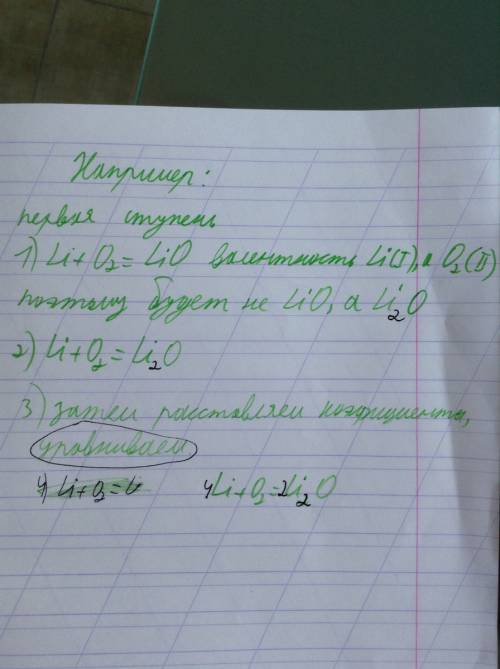 Например:
первая ступень
1) Li + O₂ = LiO валентность Li(I), а O₂(II)
поэтому будет не LiO, а Li₂O
2) Li + O₂ = Li₂O
3) затем расставляем коэфициенты,
уравниваем
4Li + O₂ = 2Li₂O